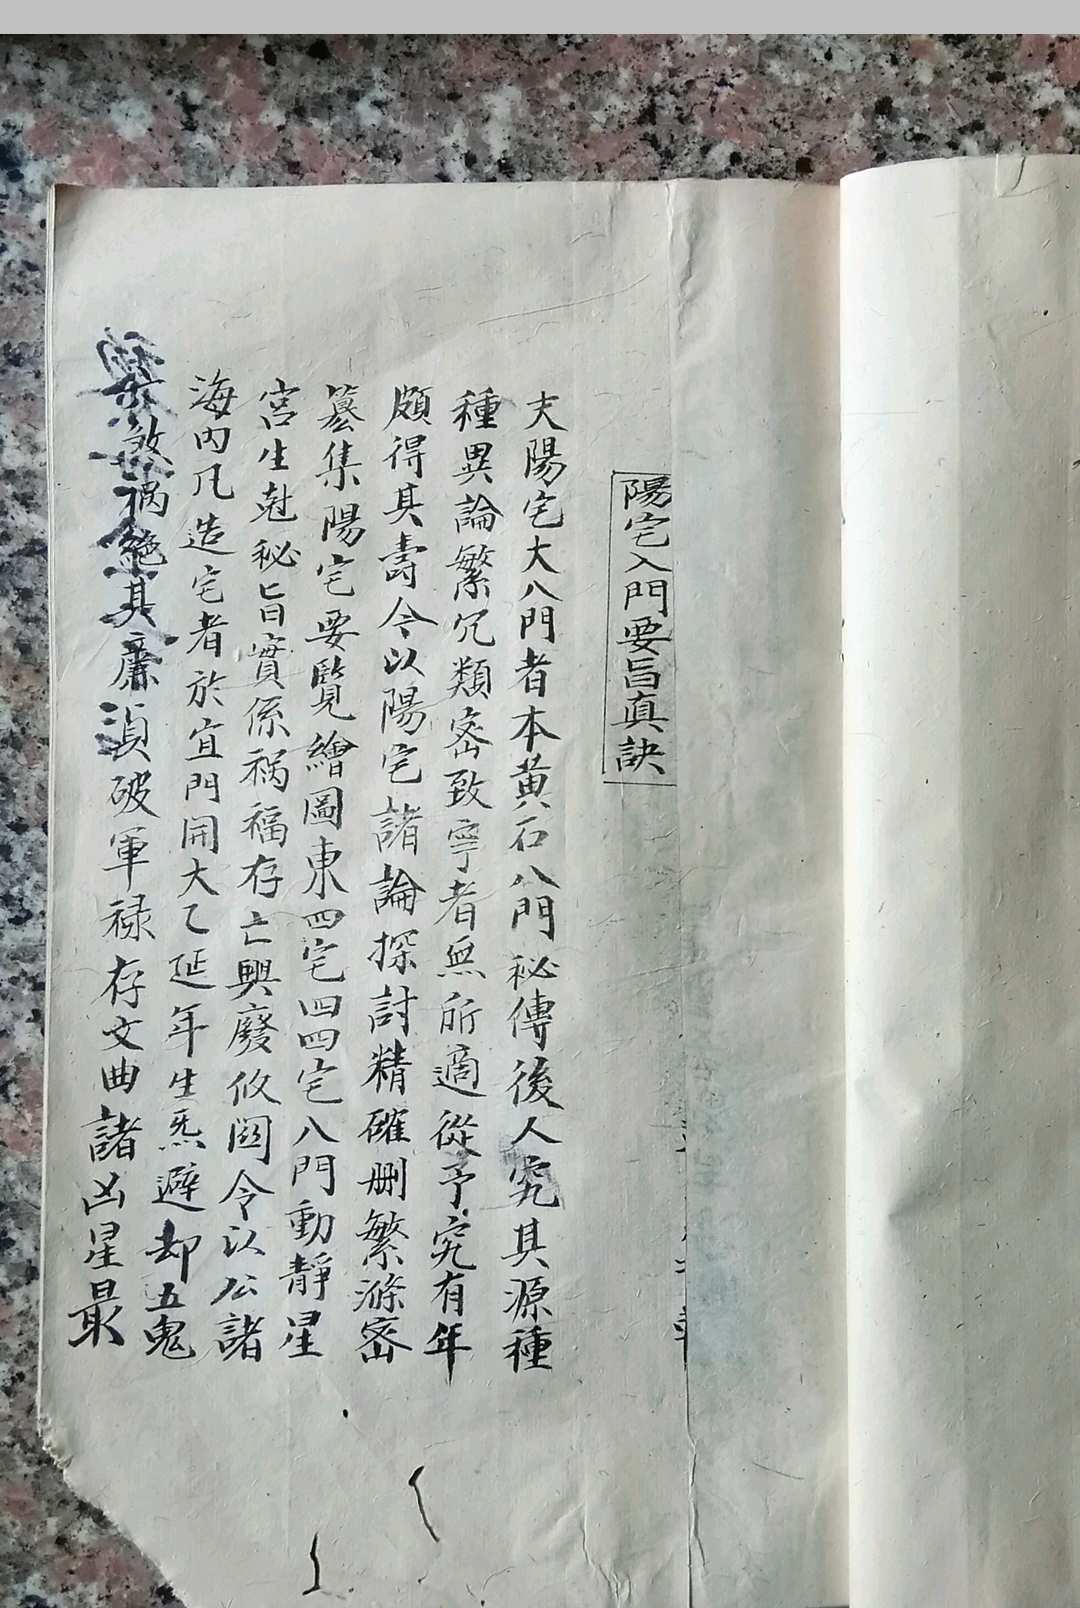 陽宅入門要旨真訣
夫陽宅大八門者本黄石八門秘傳後人究其源種
種異論繁冗類密致寧者無所適從予究有年
頗得其壽今以陽宅諸論探討精確删繁滌密
纂集陽宅要覽繪圖東四宅四四宅八門動靜星
宮生尅秘旨實係禍福存亡興廢攸関今以公諸
海内凡造宅者於宜門開大乙延年生炁避却五鬼
煞禍絶其廉湞破軍禄存文曲諸凶星最